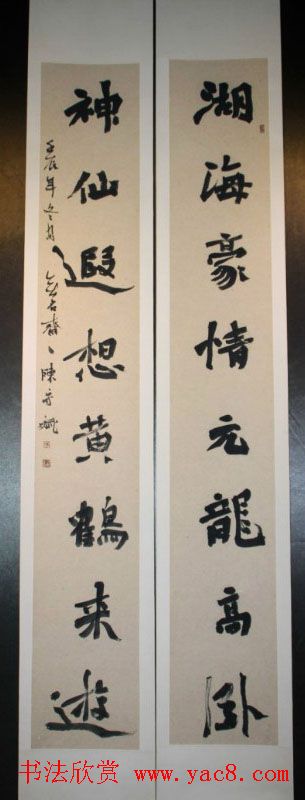 湖海豪情元龍高卧
神仙遐想黄鶴来遊
壬辰年冬月
陳
书法欣赏 www.yac8.com